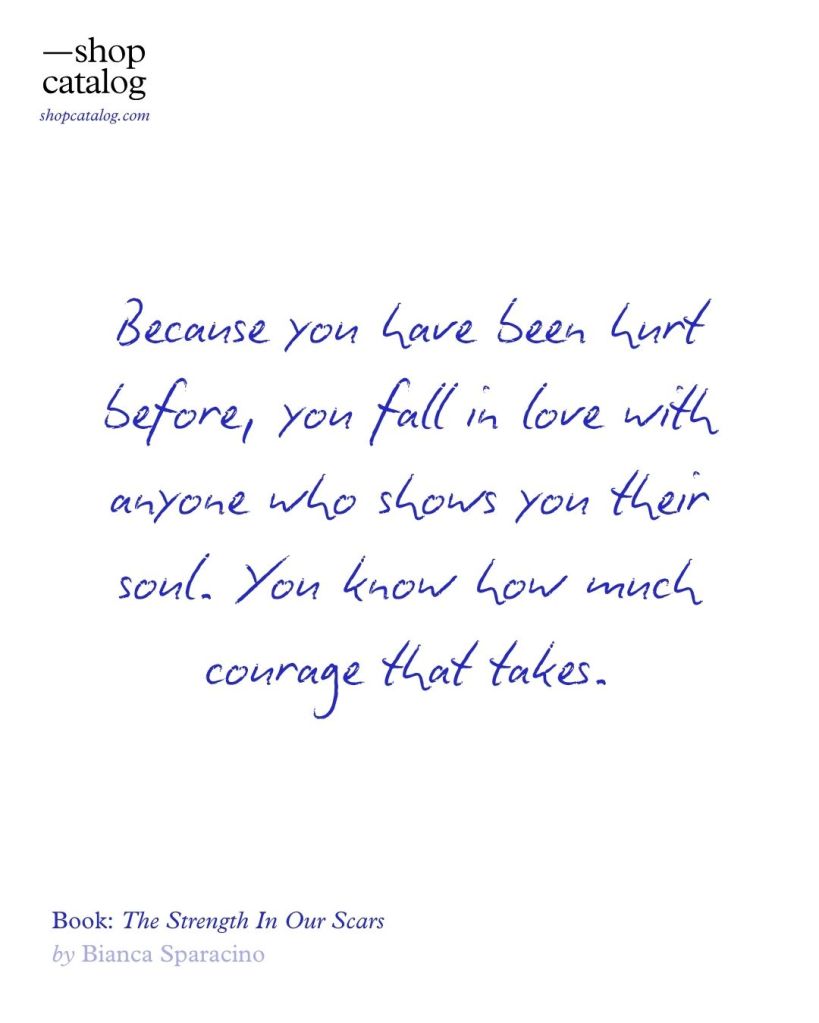 —shop
catalog
shopcatalog.com
Because you have been hurt
before, you fall in love with
anyone who shows you their
soul. You know how much
courage that takes.
Book: The Strength In Our Scars
by Bianca Sparacino